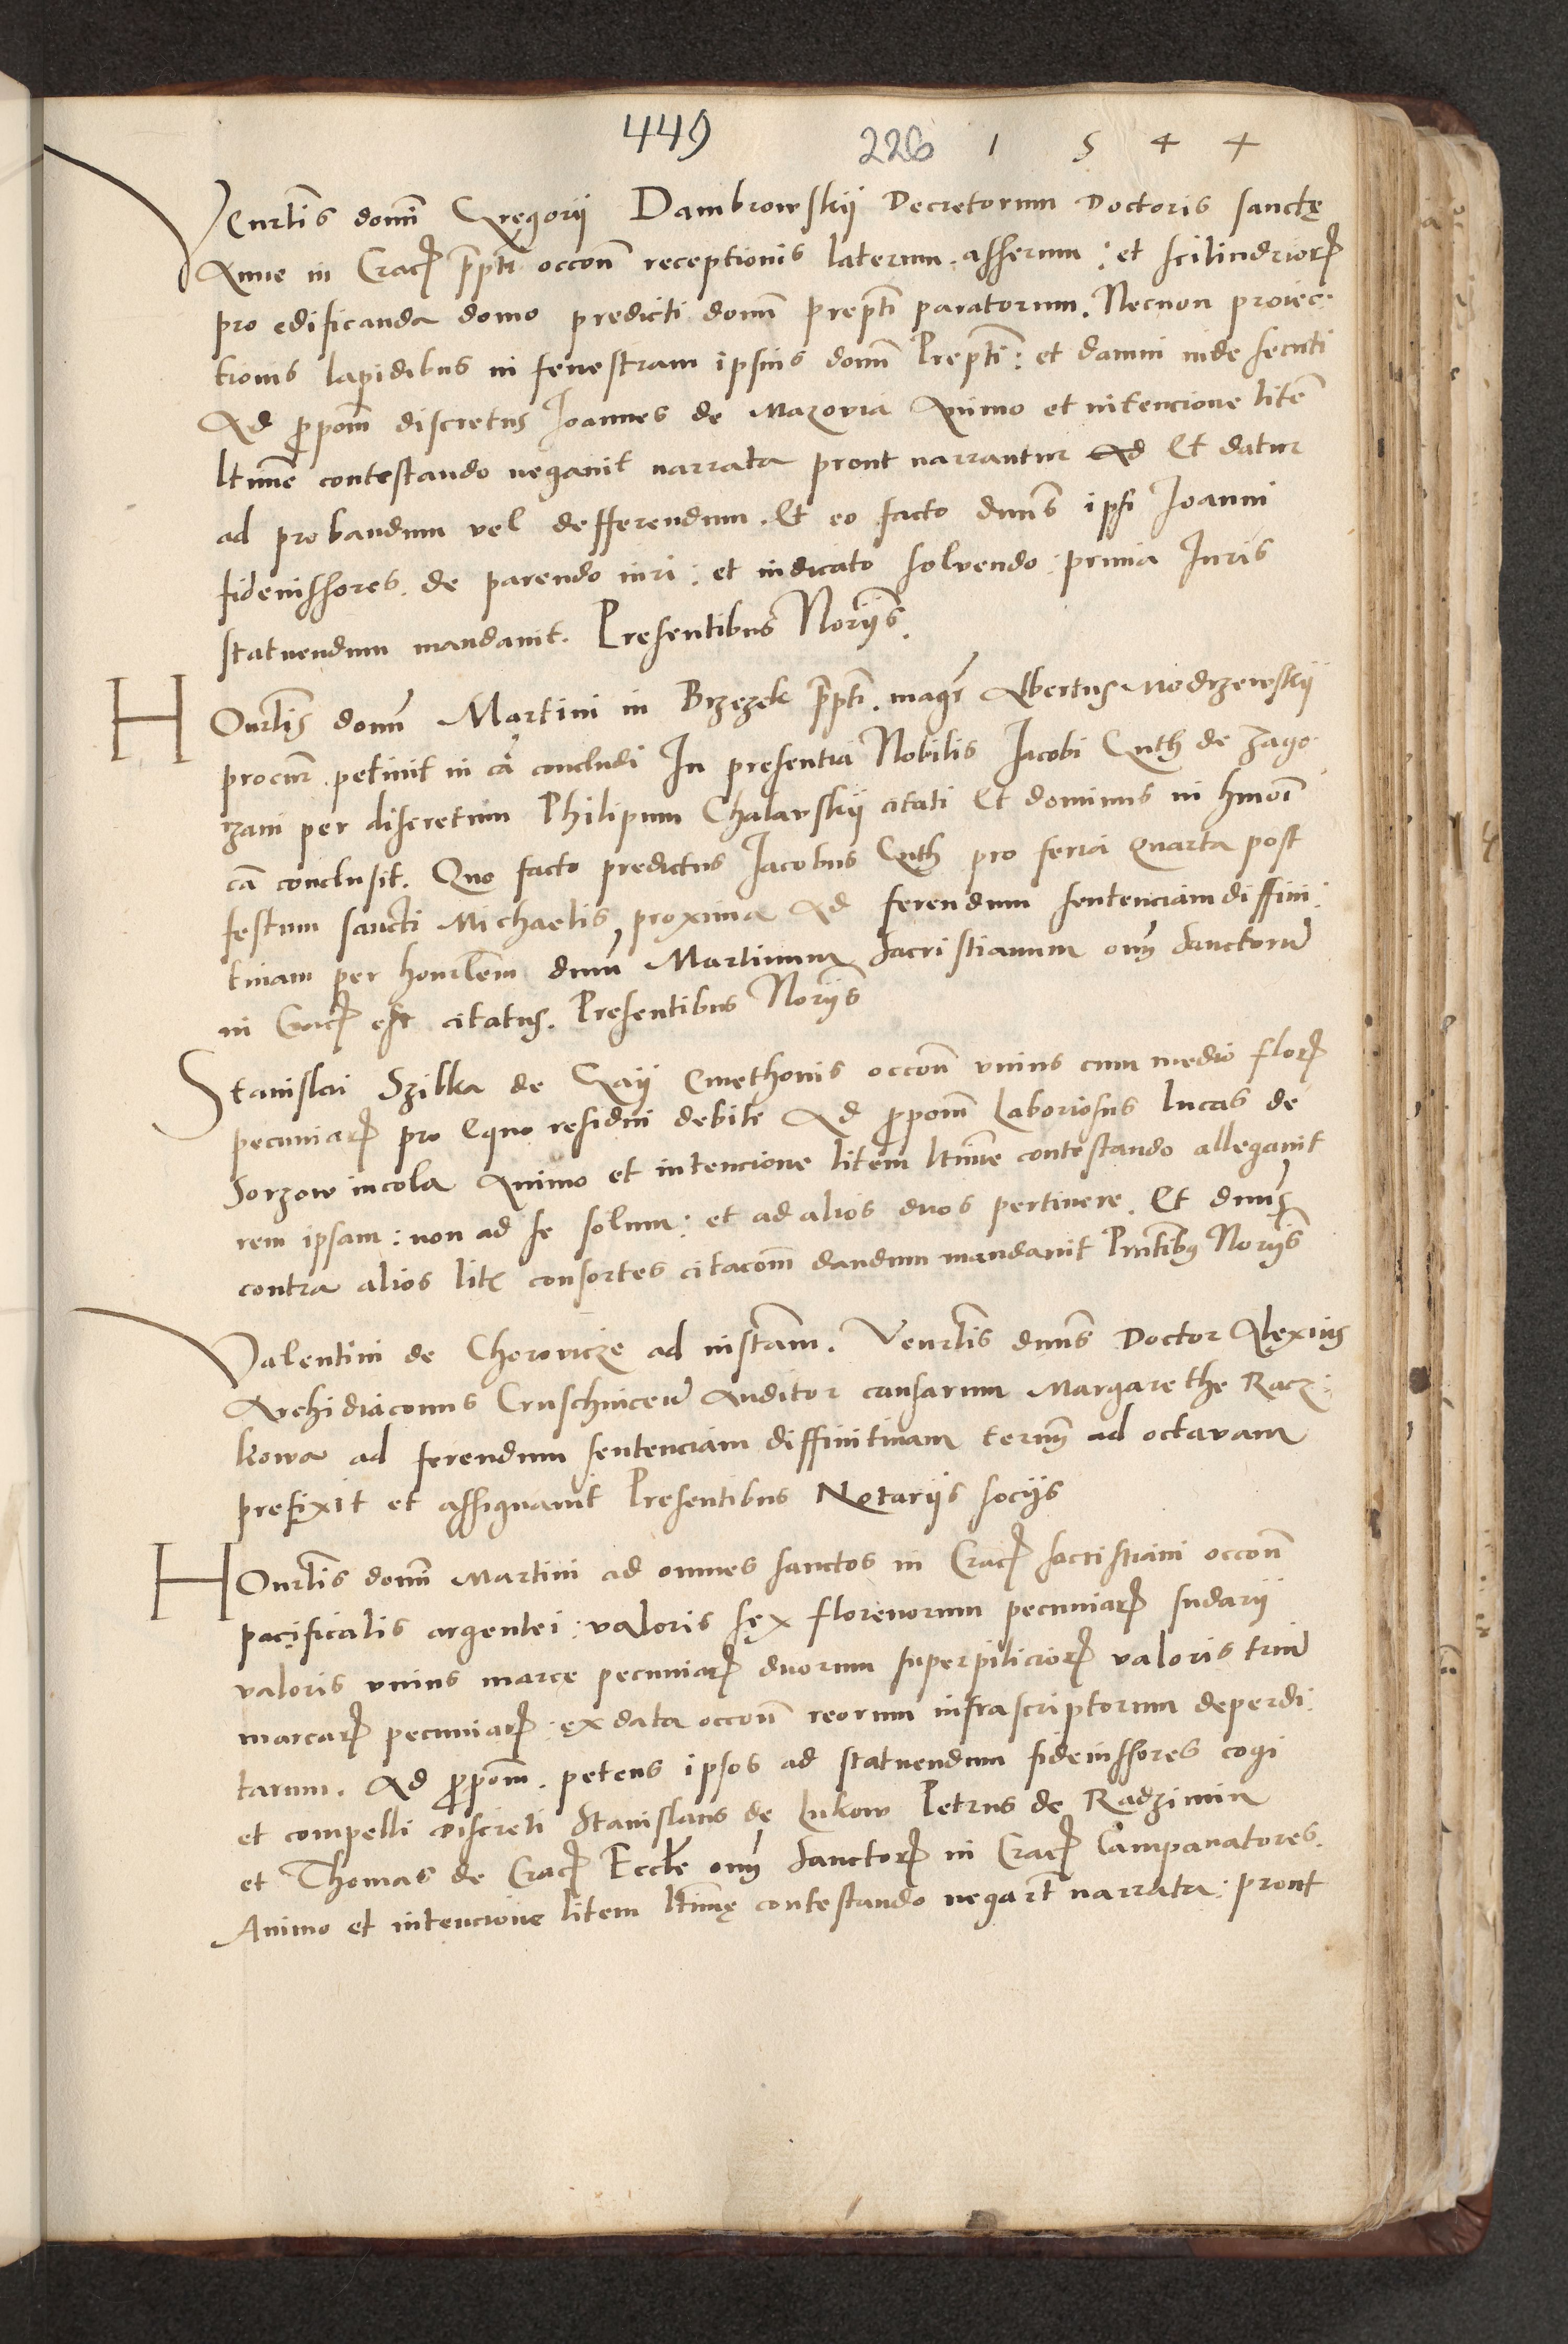 449 226 1 5 4 4
Venrlis domini Gregorij Dambrowskij Decretorum Doctoris sanctę
Anne in Crac prepti occone receptionis laterum. asserum: et scilindriorum
pro edificanda domo predicti domini prepti paratorum. Necnon proiec-
tionis lapidibus in fenestram ipsius domini Prepti: et damni inde secuti
Ad propom discretus Joannes de Mazovia Animo et intencione litem
ltime contestando negavit narrata prout narrantur Ad Et datur
ad probandum vel defferendum. Et eo facto dnus ipsi Joanni
fideiussores. de parendo iuri: et iudicato solvendo: primia Juris
statuendum mandavit. Presentibus Norijs.
HOnrlis domini Martini in Brzezek prepti. magr Albertus Modrzewskij
procur. petivit in ca concludi In presentia Nobilis Jacobi Guth de Zago-
rzani per discretum Philipum Chalavskij citati Et dominus in hmoi
ca conclusit. Quo facto predictus Jacobus Guth pro feria quarta post
festum sancti Michaelis proxima Ad ferendum sentenciam diffini:
tivam per honrlem dnum Martinum Sacristianum omnium Sanctorum
in Crac est citatus. Presentibus Norijs
Stanislai Szibka de Gaij Cmethonis occone unius cum medio flor
pecuniar pro Equo residui debite Ad propom Laboriosus Lucas de
Sorzow incola Animo et intencione litem ltime contestando allegavit
rem ipsam: non ad se solum: et ad alios duos pertinere. Et dnus
contra alios litis consortes citacom dandum mandavit Prntibus Norijs
Valentini de Chorovicze ad instam. Venrlis dnus Doctor Alexius
Archidiaconus Cruschvicen Auditor causarum Margarethe Racz:
kowa ad ferendum sentenciam diffinitivam termm ad octavam
prefixit et assignavit Presentibus Notarijs socijs
HOnrlis domini Martini ad omnes sanctos in Crac sacristiani occone
pacificalis argentei: valoris sex florenorum pecuniar sudarij
valoris unius marcę pecuniar duorum superpiliciorum valoris trium
marcar pecuniar: ex data occone reorum infrascriptorum deperdi:
tarum. Ad propom. petens ipsos ad statuendum fideiussores cogi
et compelli Discreti Stanislaus de Lukow Petrus de Radzimin
et Thomas de Crac Eccle omnium Sanctorum in Crac Campanatores.
Animo et intencione litem ltimę contestando negarunt narrata: prout